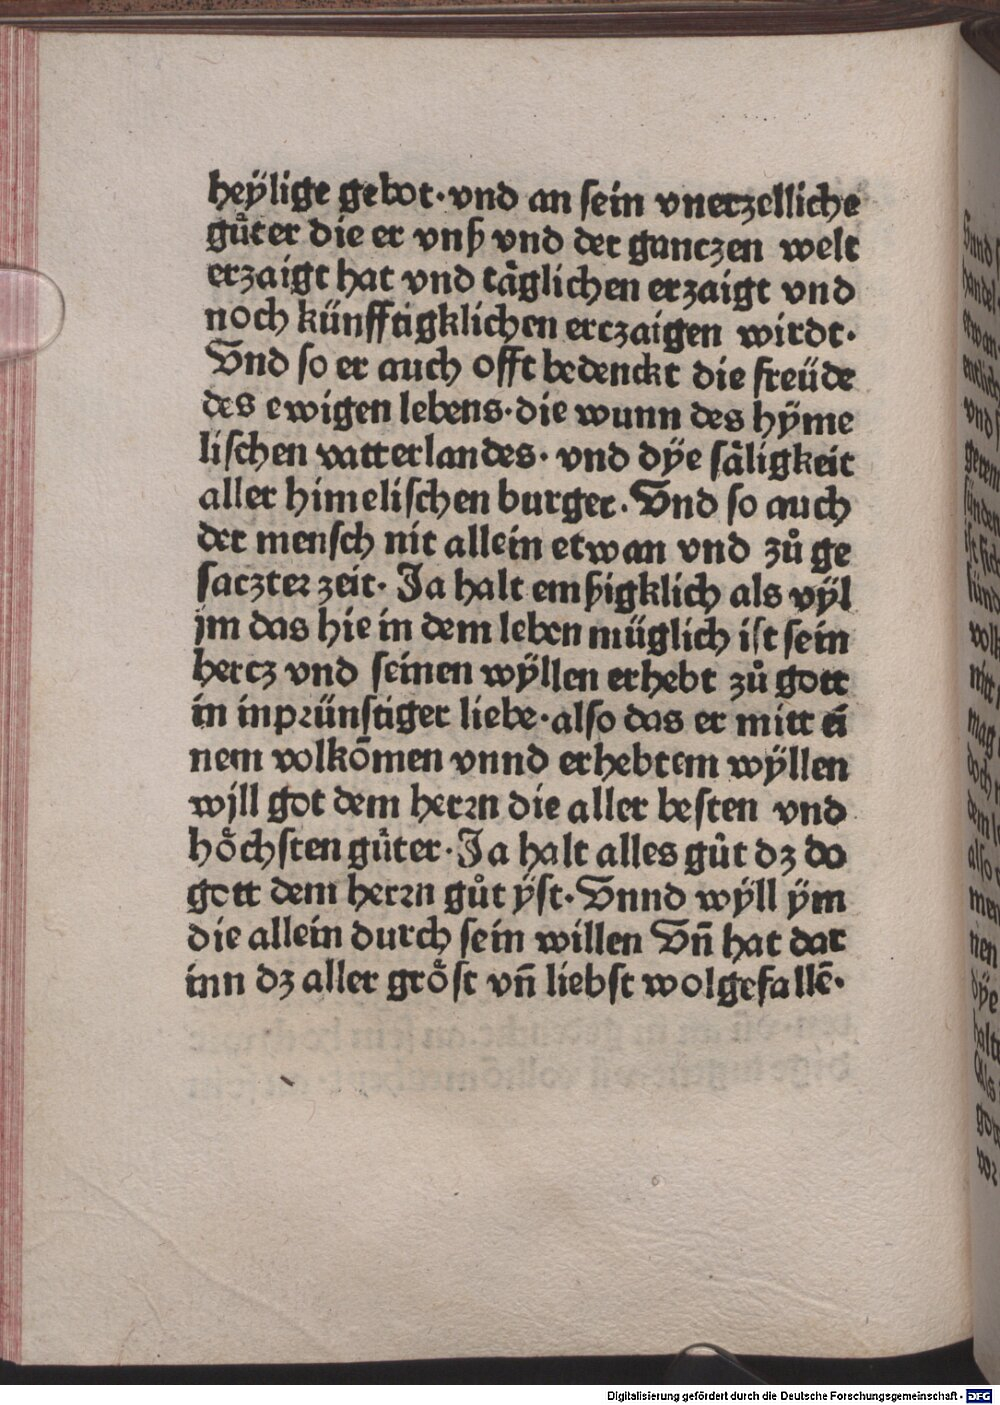 heÿlige gebot·vnd an ſein vnerzelliche
gůter die er vnß vnd der ganczen welt
erzaigt hat vnd tåglichen erzaigt vnd
noch künfftigklichen erczaigen wirdt·
Vnd ſo er auch offt bedenckt die freüde
des ewigen lebens·die wunn des hÿme
liſchen vatterlandes· vnd dÿe ſåligkeit
aller himeliſchen burger. Vnd ſo auch
der menſch nit allein etwan vnd zů ge
ſaczter zeit· Ja halt emßigklich als vÿl
jm das hie in dem leben müglich iſt ſein
hercz vnd ſeinen wÿllen erhebt zů gott
in inprünſtiger liebe·alſo das er mitt ei
nem volkōmen vnnd erhebtem wÿllen
wjll got dem herrn die aller beſten vnd
hőchſten gůter·Ja halt alles gůt dz do
gott dem herrn gůt ÿſt·Vnnd wÿll ÿm
die allein durch ſein willen Vñ hat dar
inn dz aller größt vñ liebſt wolgefallē·
Digitalisierung gefördert durch die Deutsche Forschungsgemeinschaft - DFG